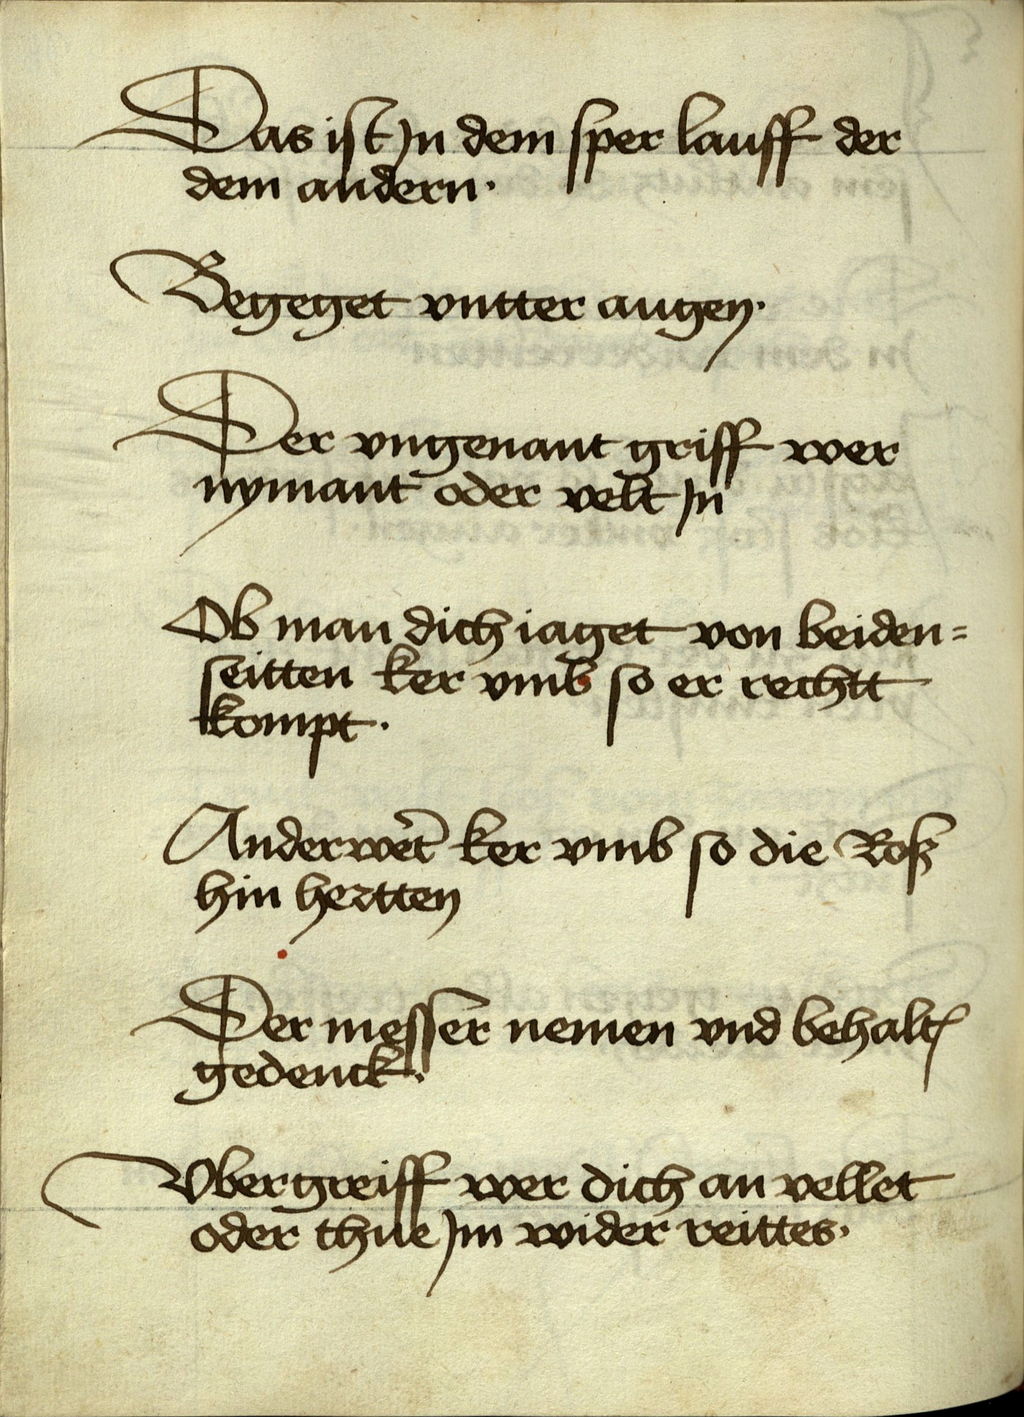 Das ist Jn dem sper lauff der
dem andern.
Begeget vntter augen.
Der vngenant griff wer
nymant oder velt Jn
Ob man dich iaget von beiden=
seitten ker vmb so er rechtt
kompt.
Anderwet ker vmb so die Roß
hin hertten
Der messer nemen vnd behalt
gedenck.
Vbergreiff wer dich an vellet
oder thue Jm wider reittes.